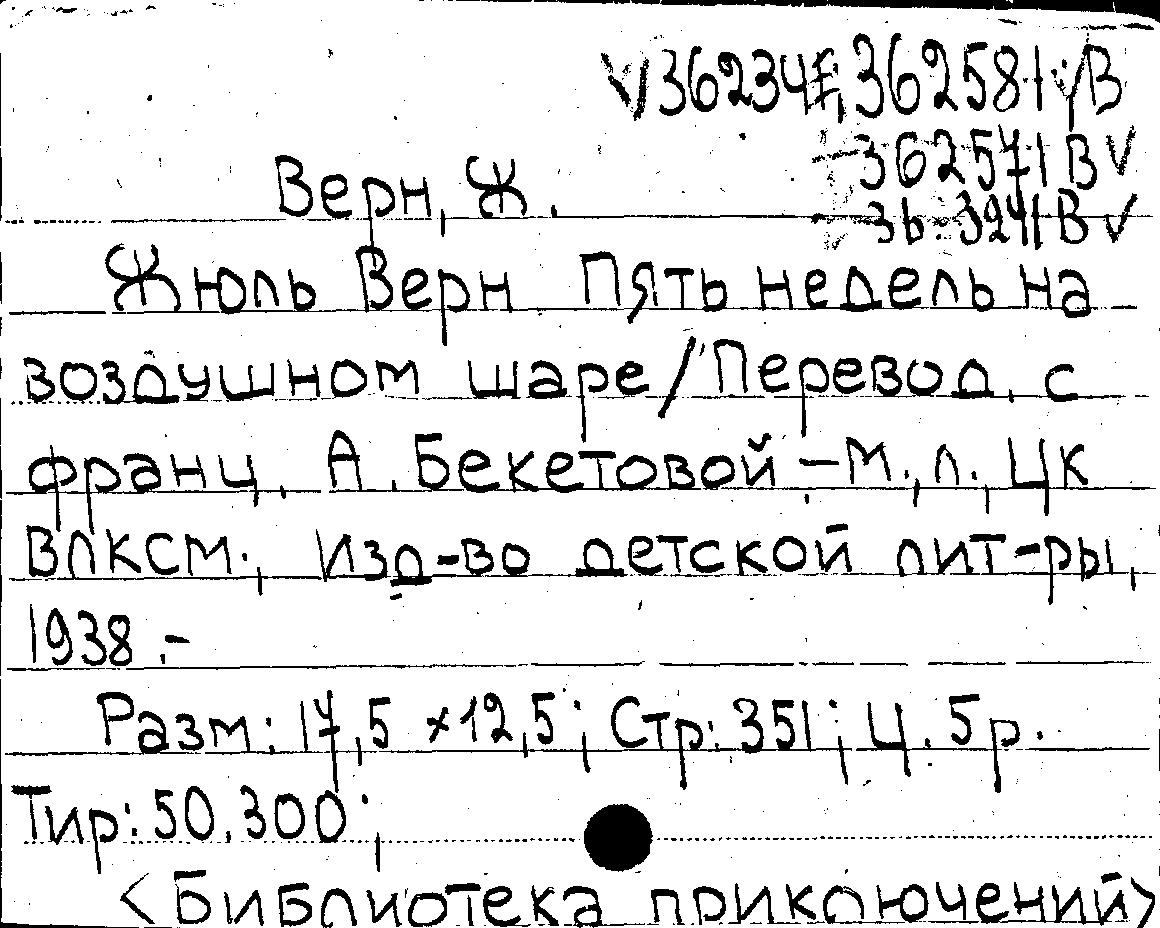 V 362347, 362581 V В
362571 В V
36.3241 В V
Верн, Ж.
Жюль Верн Пять недель на
воздушном шаре / Перевод. с
франц. А. Бекетовой – М., Л., ЦК
ВЛКСМ., Изд-во детской лит-ры,
1938.-
Разм: 17,5 x 12,5; Стр: 351; Ц. 5р.
Тир: 50.300;
<Библиотека приключений>